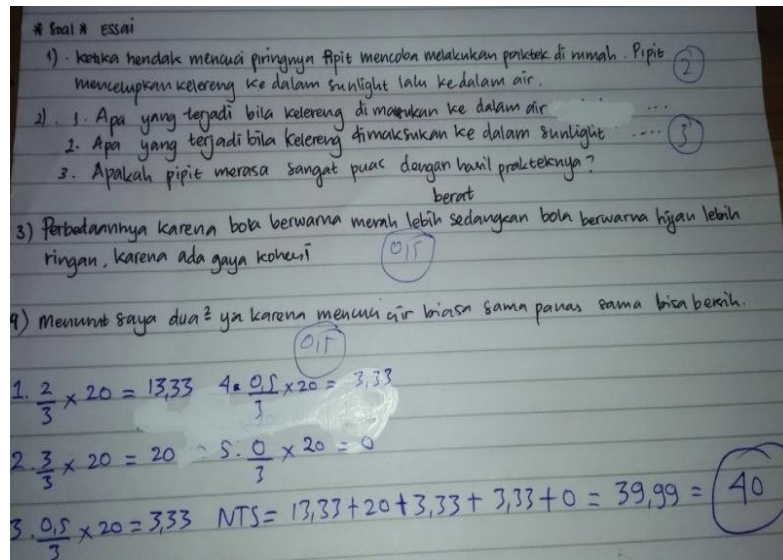 * Soal * ESSAi
1). ketika hendak mencuci piringnya Pipit mencoba melakukan praktek di rumah. Pipit (2)
mencelupkan kelereng ke dalam sunlight lalu kedalam air.
2). 1. Apa yang terjadi bila kelereng dimasukan ke dalam air ...
2. Apa yang terjadi bila kelereng dimaksukan ke dalam sunlight .... (3)
3. Apakah pipit merasa sangat puas dengan hasil prakteknya?
berat
3) Perbedaannya karena bola berwarna merah lebih sedangkan bola berwarna hijau lebih
ringan, karena ada gaya kohesi (0,5)
4) Menurut saya dua² ya karena mencuci air biasa sama panas sama bisa bersih.
(0,5)
1. 2/3 × 20 = 13,33 4. 0,5/3 × 20 = 3,33
2. 3/3 × 20 = 20 5. 0/3 × 20 = 0
3. 0,5/3 × 20 = 3,33 NTS = 13,33 + 20 + 3,33 + 3,33 + 0 = 39,99 = 40